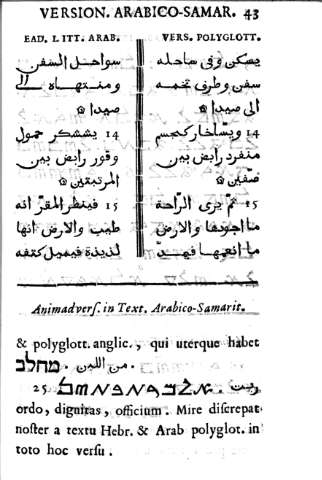 VERSION. ARABICO-SAMAR. 43
EAD. LITT. ARAB.
سواحل السفن
ومنتهاه الى
صيدا ۞
14 يششكر حمول
وقور رابض بين
المرتبقتين ۞
15 فينظر المقرّ انه
طيب والارض انها
لذيذة فيميل كتفه
VERS. POLYGLOTT.
يسكن وفى ساحله
سفن وطرفى تخمه
الى صيدا ۞
14 ويسّاخار كجسم
منفرد رابض بين
صفّين ۞
15 ثمّ يرى الراحة
ما اجودها والارض
ما انعمها فيهدّ
Animadvers. in Text. Arabico-Samarit.
& polyglott. anglic., qui uterque habet
מחלב من اللبن.
25.
ordo, dignitas, officium. Mire discrepat
noster a textu Hebr. & Arab polyglot. in
toto hoc versu.